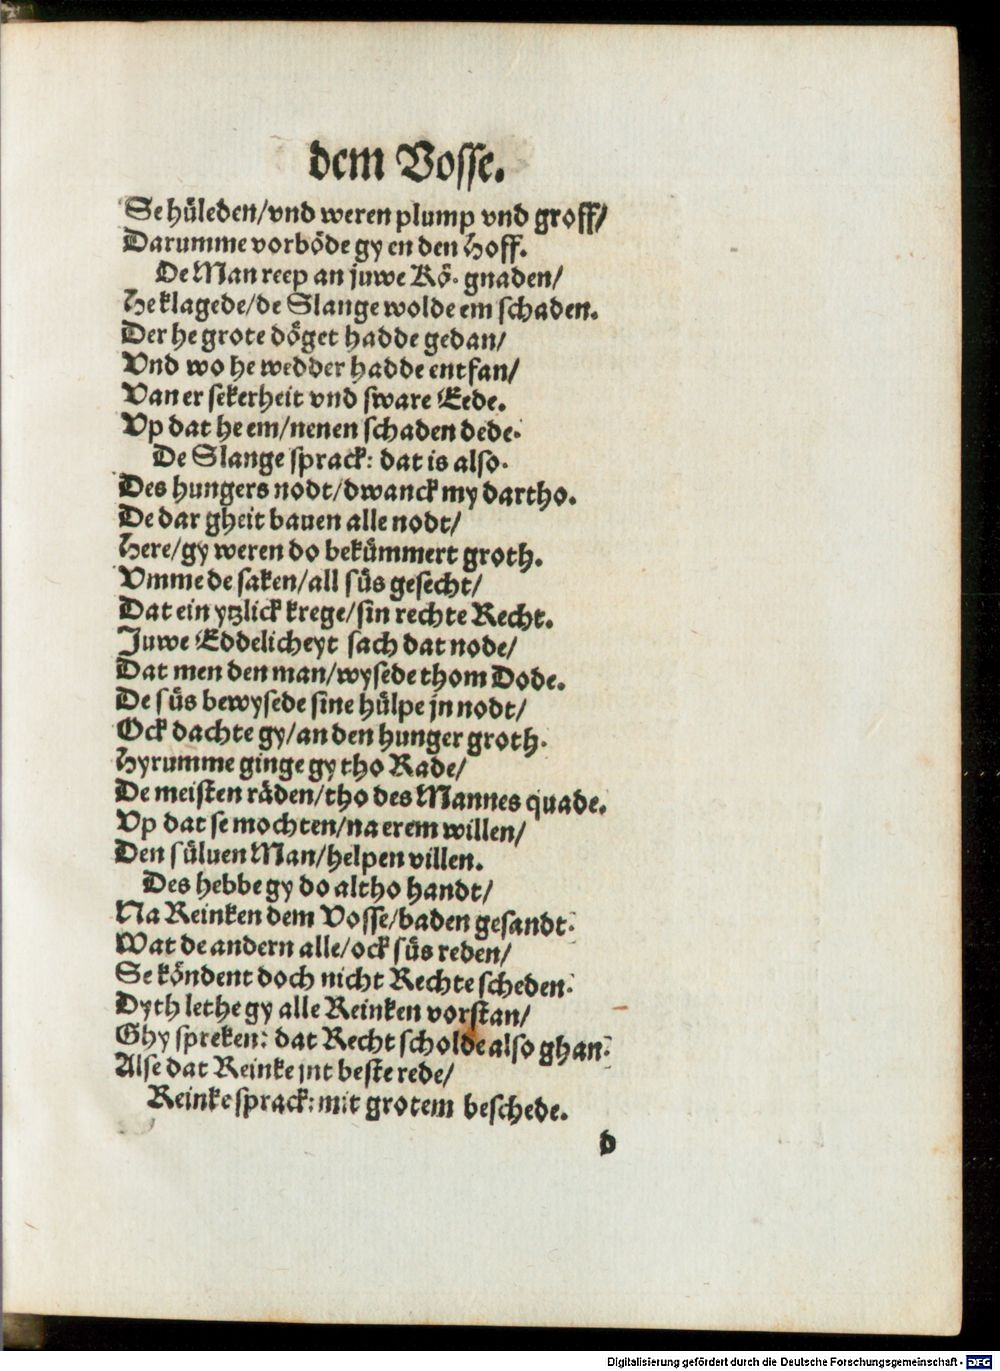 dem Vosse.
Se hüleden/vnd weren plump vnd groff/
Darumme vorböde gy en den Hoff.
De Man reep an juwe Kö. gnaden/
He klagede/de Slange wolde em schaden.
Der he grote döget hadde gedan/
Vnd wo he wedder hadde entfan/
Van er sekerheit vnd sware Eede.
Vp dat he em/nenen schaden dede.
De Slange sprack: dat is also.
Des hungers nodt/dwanck my dartho.
De dar gheit bauen alle nodt/
Here/gy weren do bekümmert groth.
Vmme de saken/all süs gesecht/
Dat ein ytzlick krege/sin rechte Recht.
Juwe Eddelicheyt sach dat node/
Dat men den man/wysede thom Dode.
De süs bewysede sine hülpe jn nodt/
Ock dachte gy/an den hunger groth.
Hyrumme ginge gy tho Rade/
De meisten räden/tho des Mannes quade.
Vp dat se mochten/na erem willen/
Den süluen Man/helpen villen.
Des hebbe gy do altho handt/
Na Reinken dem Vosse/baden gesandt.
Wat de andern alle/ock süs reden/
Se köndent doch nicht Rechte scheden.
Dyth lethe gy alle Reinken vorstan/
Ghy spreken: dat Recht scholde also ghan.
Alse dat Reinke jnt beste rede/
Reinke sprack: mit grotem beschede.
d
Digitalisierung gefördert durch die Deutsche Forschungsgemeinschaft - DFG